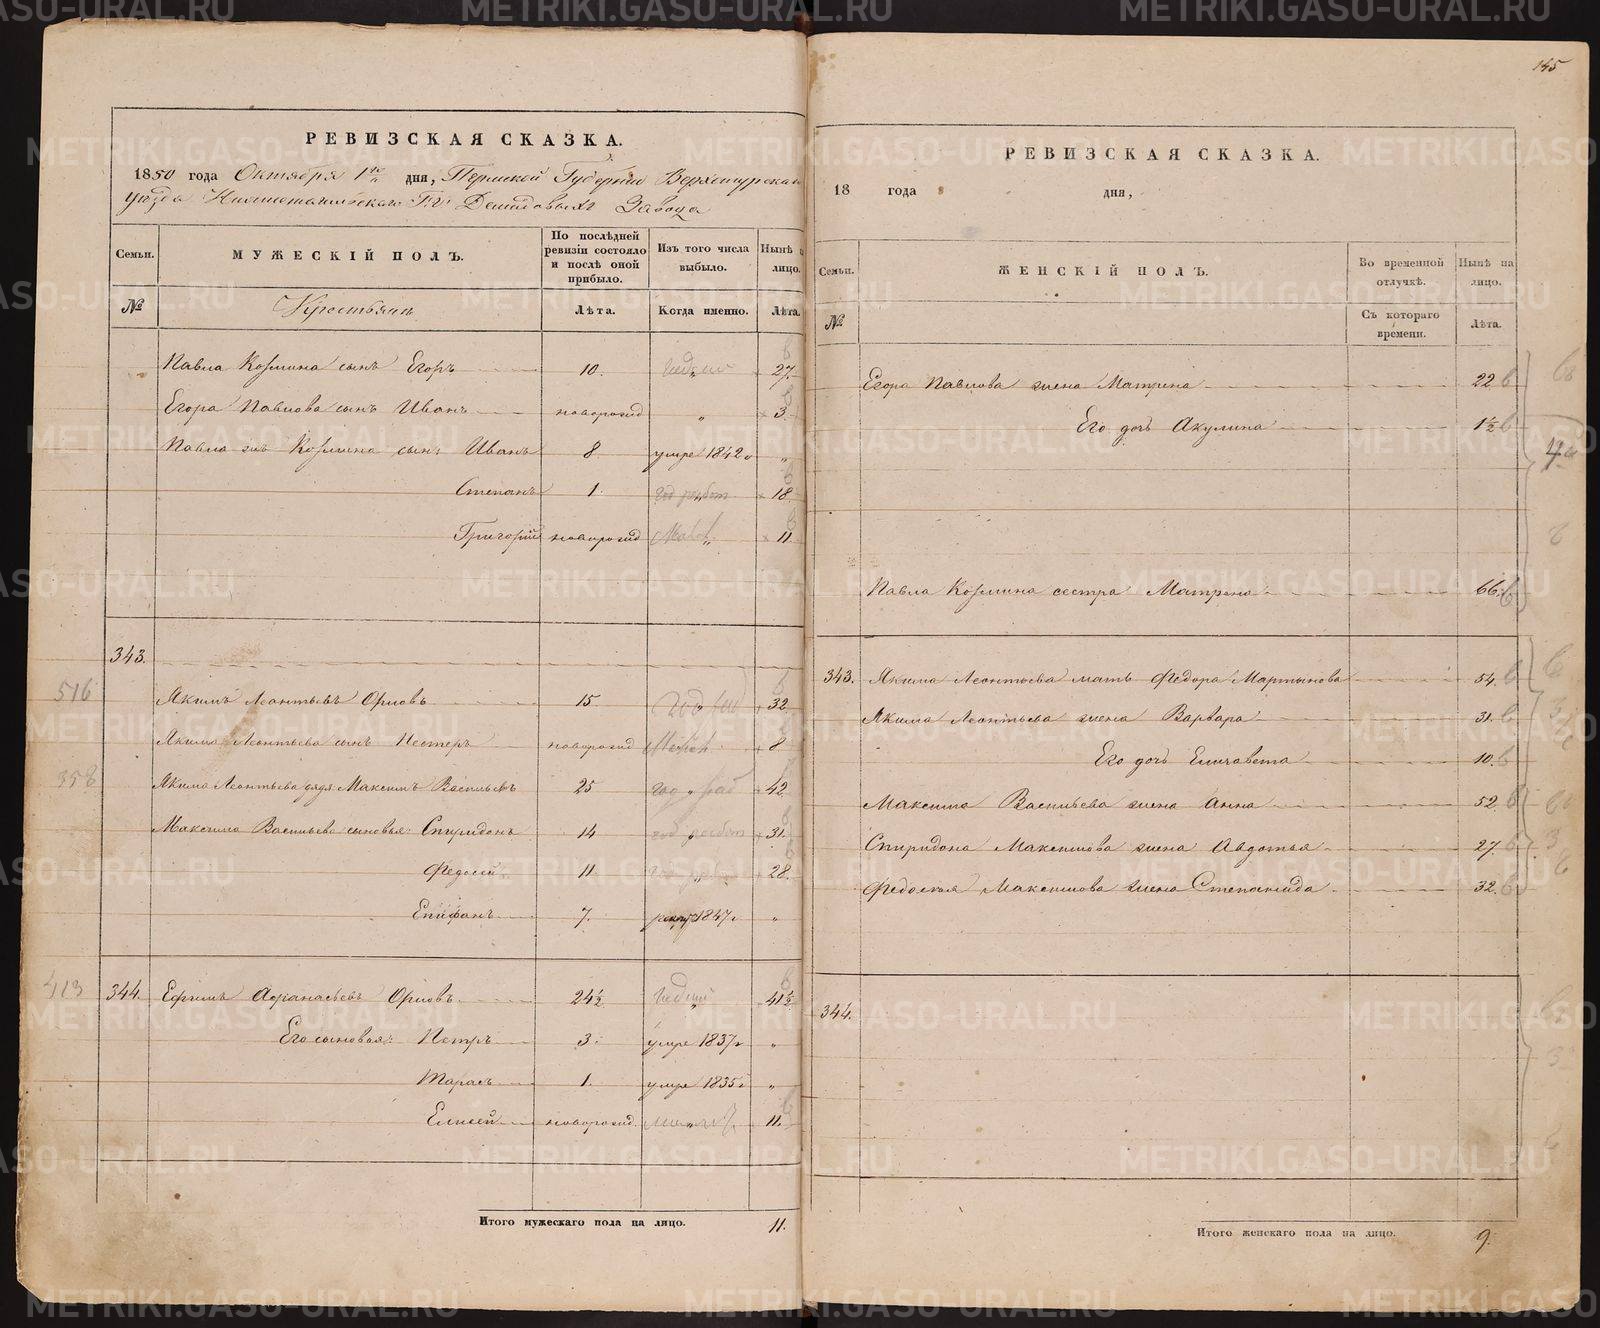 145
РЕВИЗСКАЯ СКАЗКА.
1850 года Октября 1го дня, Пермской Губернии Верхотурскаго
уезда Нижнетагильскаго Гг. Демидовыхъ Завода
Семьи. МУЖЕСКІЙ ПОЛЪ. По послѣдней ревизіи состояло и послѣ оной прибыло. Изъ того числа выбыло. Нынѣ на лицо.
№ Крестьянъ Лѣта. Когда именно. Лѣта.
Павла Козмина сынъ Егоръ 10. " 27.
Егора Павлова сынъ Иванъ новорожд " 3.
Павла жъ Козмина сынъ Иванъ 8 умре 1842 "
Степанъ 1. " 18.
Григорій новорожд " 11
343.
516 Якимъ Леонтьевъ Орловъ 15 " 32
Якима Леонтьева сынъ Нестеръ новорожд " 8
358 Якима Леонтьева дядя Максимъ Васильевъ 25 " 42
Максима Васильева сыновья: Спиридонъ 14 " 31.
Федосей 11 " 28.
Епифанъ 7. 1847 "
413 344. Ефимъ Афанасьевъ Орловъ 24½ " 41½
Его сыновья: Петръ 3. умре 1837 "
Тарасъ 1. умре 1835 "
Елисей новорожд. " 11.
Итого мужескаго пола на лицо. 11.
РЕВИЗСКАЯ СКАЗКА.
18 года дня,
Семьи. ЖЕНСКІЙ ПОЛЪ. Во временной отлучкѣ. Нынѣ на лицо.
№ Съ котораго времени. Лѣта.
Егора Павлова жена Матрена 22
Его дочь Акулина 1½
Павла Козмина сестра Матрена 66.
343. Якима Леонтьева мать Федора Мартынова 54.
Якима Леонтьева жена Варвара 31.
Его дочь Елизавета 10.
Максима Васильева жена Анна 52.
Спиридона Максимова жена Авдотья 27.
Федосея Максимова жена Степанида 32.
344.
Итого женскаго пола на лицо. 9.
METRIKI.GASO-URAL.RU